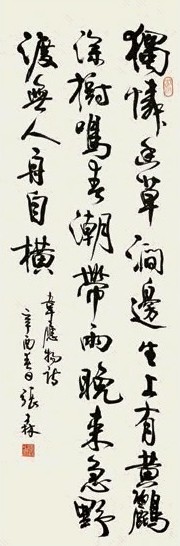 獨憐幽草澗邊生上有黃鸝
深樹鳴春潮帶雨晚来急野
渡無人舟自橫
韋應物詩
辛酉春日張森